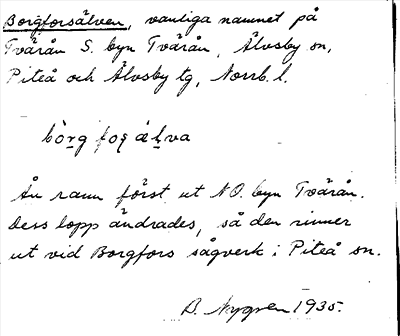 Borgforsälven, vanliga namnet på
Tvärån S. byn Tvärån, Älvsby sn,
Piteå och Älvsby tg, Norrb. l.
bòrg foș æḷva
Ån rann först ut NO. byn Tvärån.
Dess lopp ändrades, så den rinner
ut vid Borgfors sågverk i Piteå sn.
B. Nygren 1935.